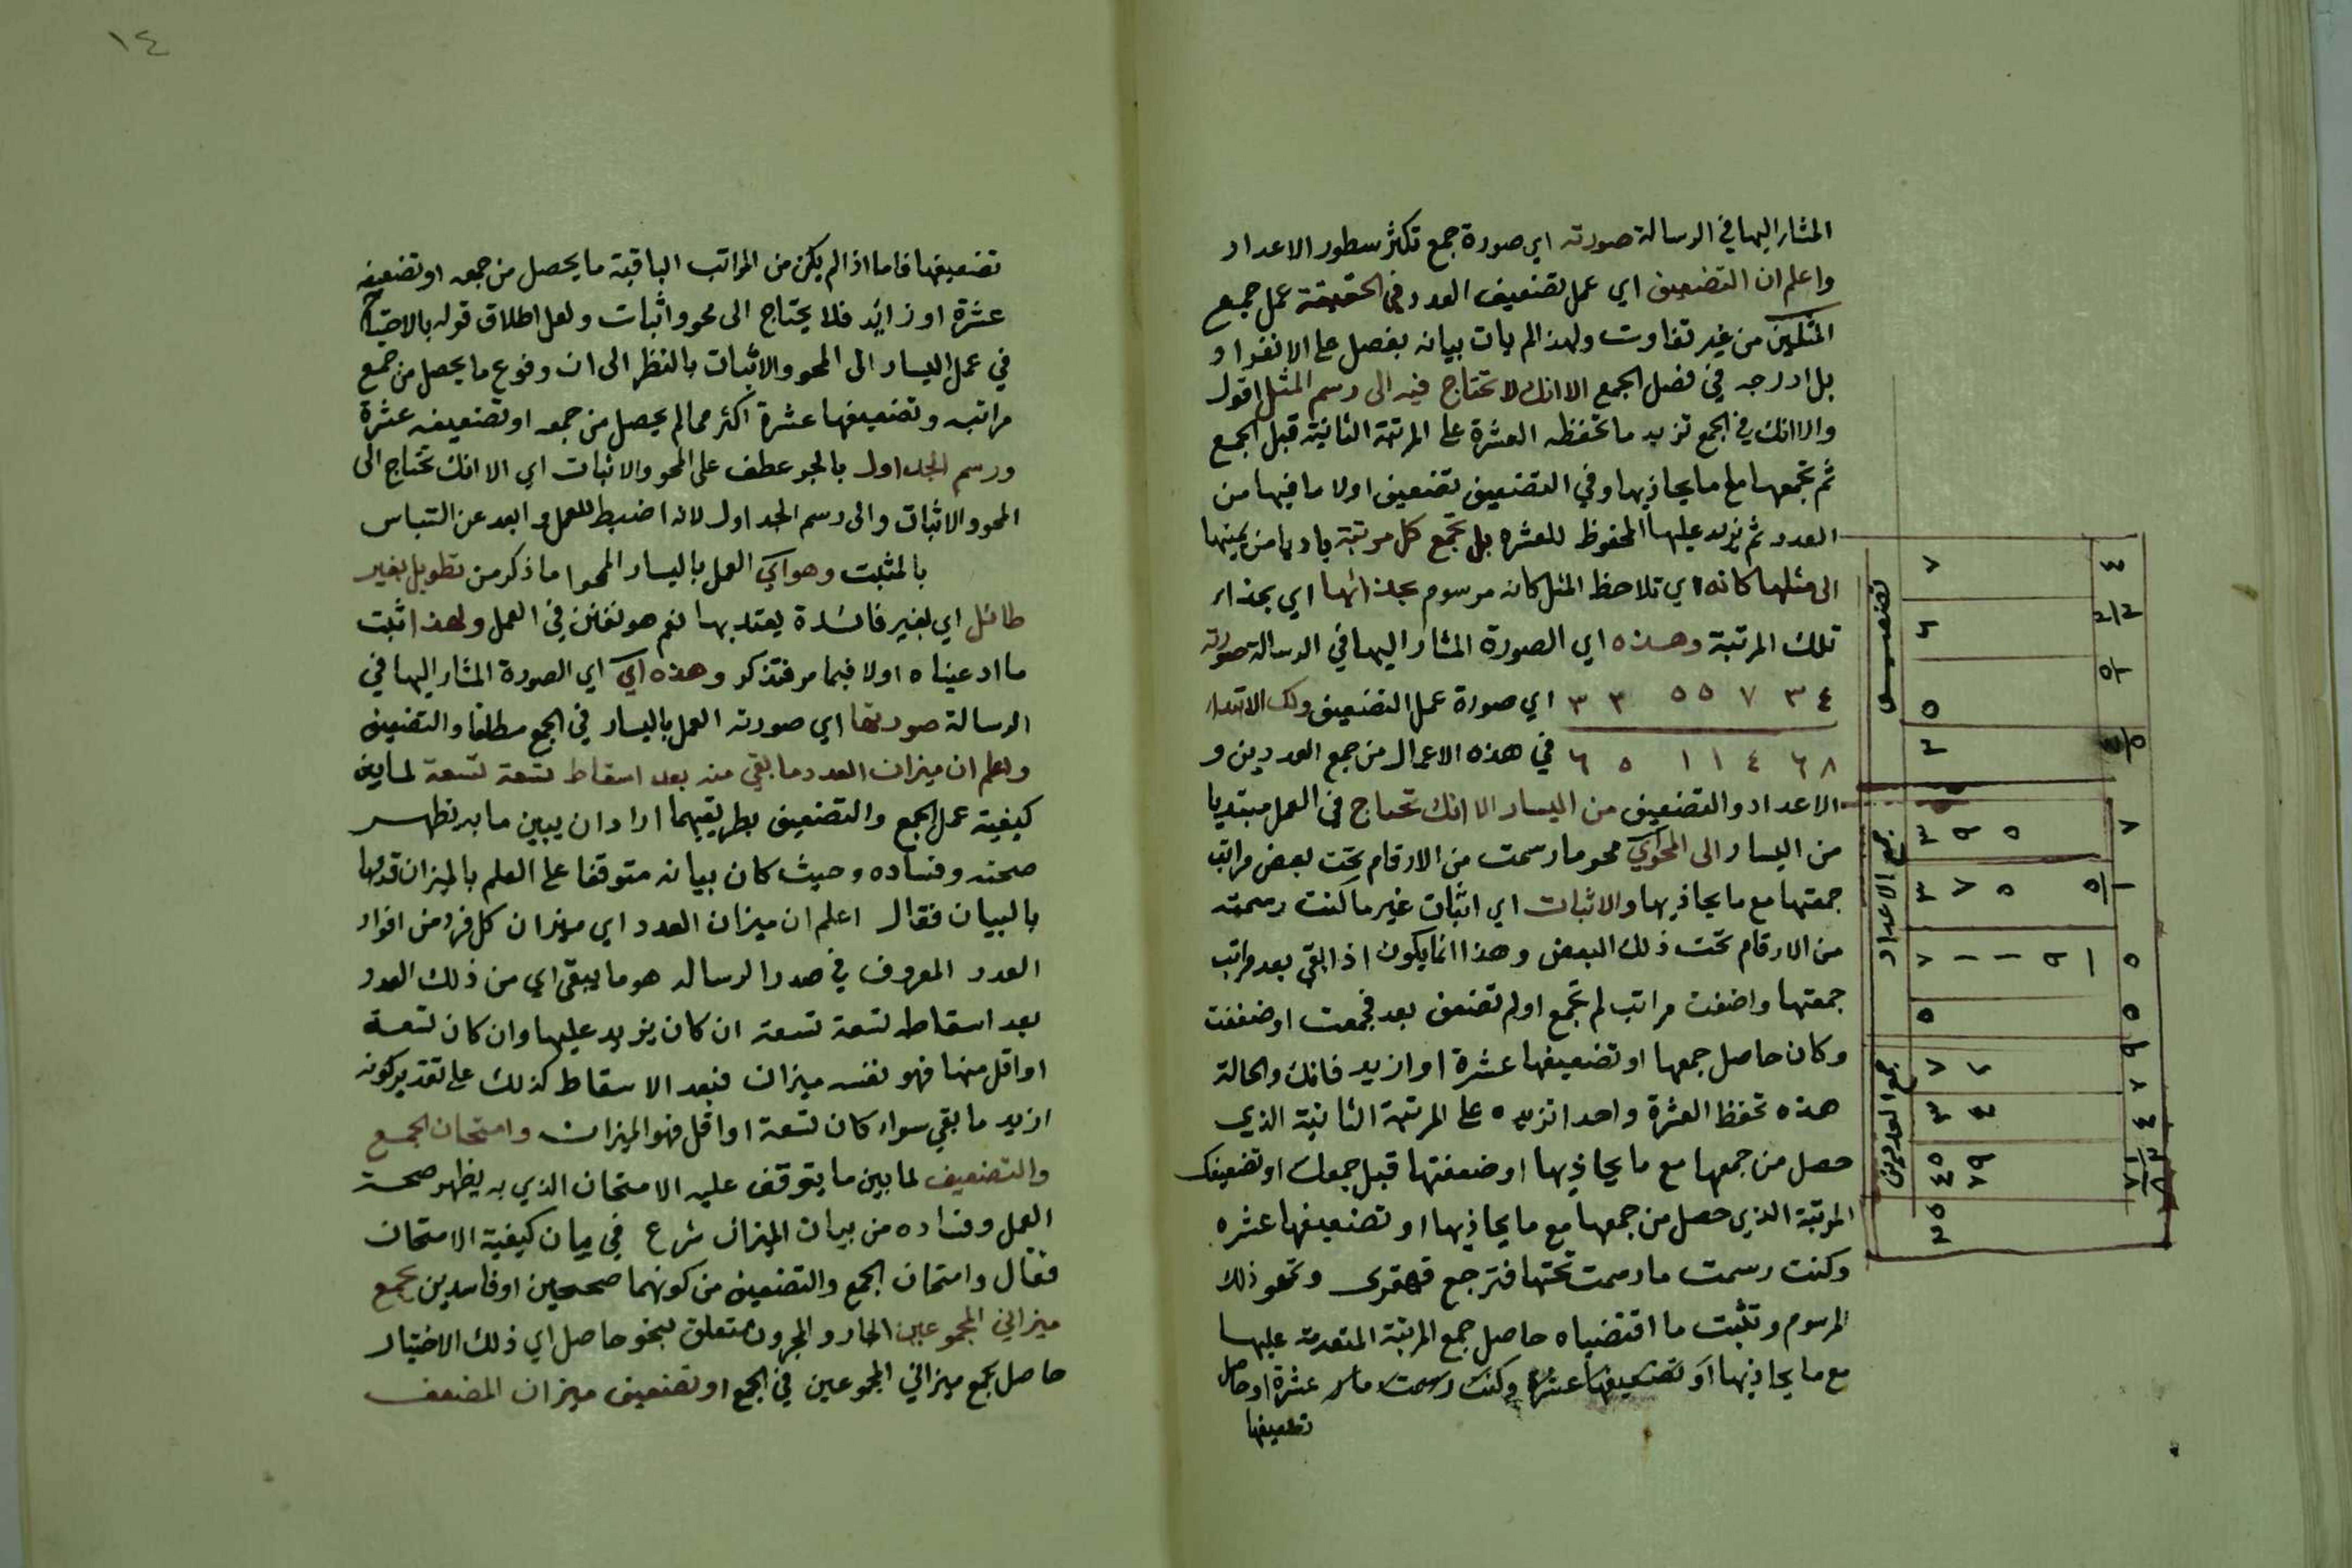 المشار اليها في الرسالة صورته اي صورة جمع تكثر سطور الاعداد
واعلم ان التضعيف اي عمل تضعيف العدد في الحقيقة عمل جمع
المثلين من غير تفاوت ولهذا لم يات بيانه بفصل على الانفراد
بل ادرجه في فصل الجمع الا انك لا تحتاج فيه الى رسم المثل اقول
والا انك في الجمع تزيد ما تحفظه العشرة على المرتبة الثانية قبل الجمع
ثم تجمعها مع ما يحاذيها وفي التضعيف تضعيف اولا ما فيها من
العدد ثم يزيد عليها المحفوظ للعشره بل تجمع كل مرتبة باديا من يمينها
الى مثلها كانه اي تلاحظ المثل كانه مرسوم بحذائها اي بحذاء
تلك المرتبة وهذه اي الصورة المشار اليها في الرسالة صورته
٣ ٣ ٥ ٥ ٧ ٣ ٤ اي صورة عمل التضعيف ولك الابتداء
٦ ٥ ١ ١ ٤ ٦ ٨ في هذه الاعمال من جمع العددين و
الاعداد والتضعيف من اليسار الا انك تحتاج في العمل مبتديا
من اليسار الى المحو اي محو ما رسمت من الارقام تحت بعض مراتب
جمعتها مع ما يحاذيها والاثبات اي اثبات غير ما كنت رسمته
من الارقام تحت ذلك البعض وهذا انما يكون اذا بقي بعد مراتب
جمعتها واضفت مراتب لم تجمع اولم تضعف بعد فجمعت او ضعفت
وكان حاصل جمعها او تضعيفها عشرة او ازيد فانك والحالة
هذه تحفظ العشرة واحدا تزيده على المرتبة الثانية الذي
حصل من جمعها مع ما يحاذيها او ضعفتها قبل جمعك او تضعيفك
المرتبة الذي حصل من جمعها مع ما يحاذيها او تضعيفها عشره
وكنت رسمت ما رسمت تحتها فترجع قهقرى وتمحو ذلك
المرسوم وتثبت ما اقتضياه حاصل جمع المرتبة المتقدمة عليها
مع ما يحاذيها او تضعيفها عشرة وكنت رسمت عشرة او حاصل
تضعيفها
تضعيف
جمع الاعداد
جمع العددين
١٤
تضعيفها فاما اذا لم يكن من المراتب الباقية ما يحصل من جمعه او تضعيفه
عشرة او زايد فلا يحتاج الى محو واثبات ولعل اطلاق قوله بالاحتياج
في عمل اليسار الى المحو والاثبات بالنظر الى ان وقوع ما يحصل من جمع
مراتبه وتضعيفها عشرة اكثر مما لم يحصل من جمعه او تضعيفه عشرة
ورسم الجداول بالجر عطف على المحو والاثبات اي الا انك تحتاج الى
المحو والاثبات والى رسم الجداول لانه اضبط للعمل وابعد عن التباس
بالمثبت وهو اي العمل باليسار المحوا ما ذكر من تطويل بغير
طائل اي بغير فائدة يعتد بها نعم هو تفنن في العمل ولهذا اثبت
ما ادعيناه اولا فيما مر فتذكر وهذه اي اي الصورة المشار اليها في
الرسالة صورتها اي صورته العمل باليسار في الجمع مطلقا والتضعيف
واعلم ان ميزان العدد ما بقي منه بعد اسقاط تسعة تسعة لما بين
كيفية عمل الجمع والتضعيف بطريقيهما اراد ان يبين ما به تظهر
صحته وفساده وحيث كان بيانه متوقفا على العلم بالميزان قدمها
بالبيان فقال اعلم ان ميزان العدد اي ميزان كل فرد من افراد
العدد المعروف في صدر الرساله هو ما يبقى اي من ذلك العدد
بعد اسقاط تسعة تسعة ان كان يزيد عليها وان كان تسعة
او اقل منها فهو نفسه ميزان فبعد الاسقاط كذلك على تقدير كونه
ازيد ما بقي سواء كان تسعة او اقل فهو الميزان وامتحان الجمع
والتضعيف لما بين ما يتوقف عليه الامتحان الذي به يظهر صحة
العمل وفساده من بيان الميزان شرع في بيان كيفية الامتحان
فقال وامتحان الجمع والتضعيف من كونهما صحيحين او فاسدين بجمع
ميزاني المجموعين الجار والمجرور متعلق بنحو حاصل اي ذلك الاختبار
حاصل بجمع ميزاني المجموعين في الجمع او تضعيف ميزان المضعف